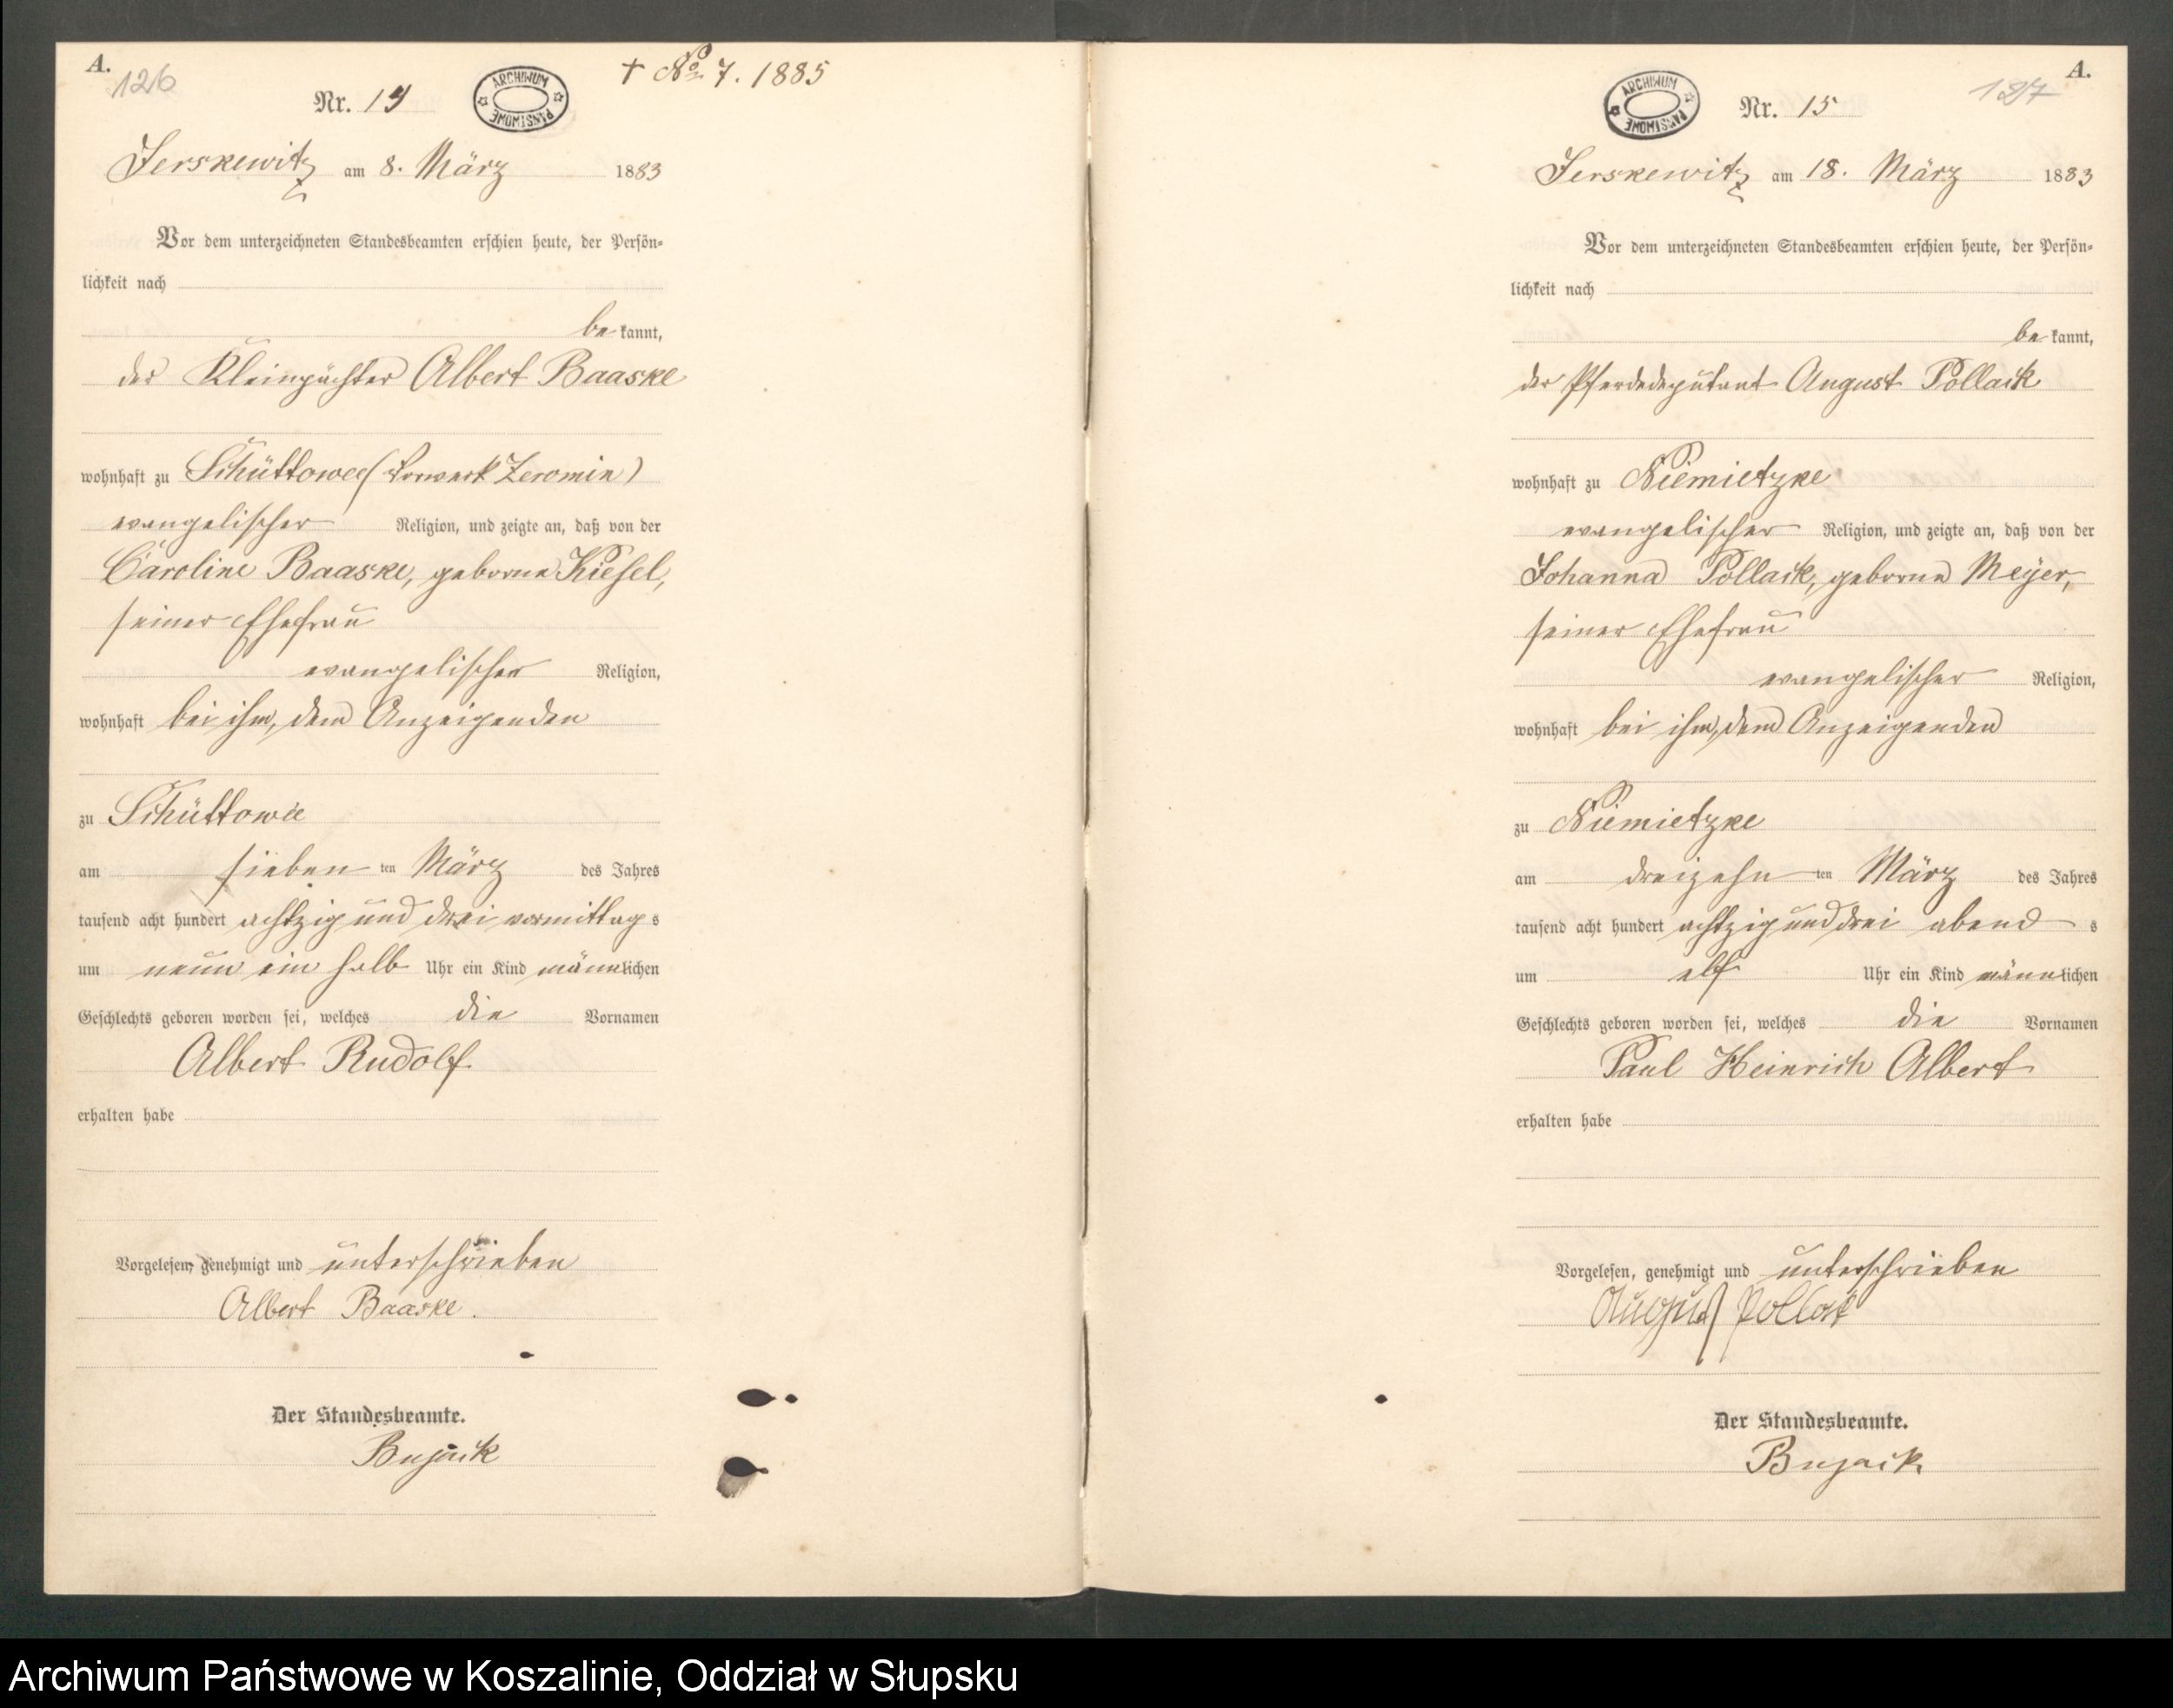 A.
126
Nr. 14
ARCHIWUM PAŃSTWOWE
† No 7. 1885
Jerskewitz am 8. März 1883
Vor dem unterzeichneten Standesbeamten erschien heute, der Persön-
lichkeit nach
be kannt,
der Kleinpächter Albert Baaske
wohnhaft zu Schüttower (Vorwerk Zeromin)
evangelischer Religion, und zeigte an, daß von der
Caroline Baaske, geborne Kiesel,
seiner Ehefrau
evangelischer Religion,
wohnhaft bei ihm, dem Anzeigenden
zu Schüttowie
am sieben ten März des Jahres
tausend acht hundert achtzig und drei vormittag s
um neun ein halb Uhr ein Kind männlichen
Geschlechts geboren worden sei, welches die Vornamen
Albert Rudolf
erhalten habe
Vorgelesen, genehmigt und unterschrieben
Albert Baaske.
Der Standesbeamte.
Bujack
A.
127
ARCHIWUM PAŃSTWOWE
Nr. 15
Jerskewitz am 18. März 1883
Vor dem unterzeichneten Standesbeamten erschien heute, der Persön-
lichkeit nach
be kannt,
der Pferdedeputant August Pollack
wohnhaft zu Niemietzke
evangelischer Religion, und zeigte an, daß von der
Johanna Pollack, geborne Meyer,
seiner Ehefrau
evangelischer Religion,
wohnhaft bei ihm, dem Anzeigenden
zu Niemietzke
am dreizehn ten März des Jahres
tausend acht hundert achtzig und drei abend s
um elf Uhr ein Kind männlichen
Geschlechts geboren worden sei, welches die Vornamen
Paul Heinrich Albert
erhalten habe
Vorgelesen, genehmigt und unterschrieben
August Pollak
Der Standesbeamte.
Bujack
Archiwum Państwowe w Koszalinie, Oddział w Słupsku